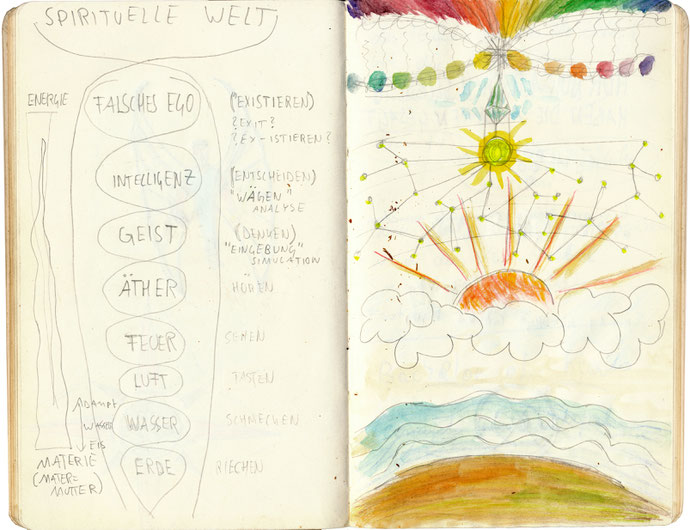 SPIRITUELLE WELT
ENERGIE
FALSCHES EGO
(EXISTIEREN)
? EXIT?
? EX-ISTIEREN?
INTELLIGENZ
(ENTSCHEIDEN)
"WÄGEN"
ANALYSE
GEIST
(DENKEN)
"EINGEBUNG"
SIMULATION
ÄTHER
HÖREN
FEUER
SEHEN
LUFT
TASTEN
DAMPF
WASSER
EIS
WASSER
SCHMECKEN
MATERIE
(MATER=
MUTTER)
ERDE
RIECHEN